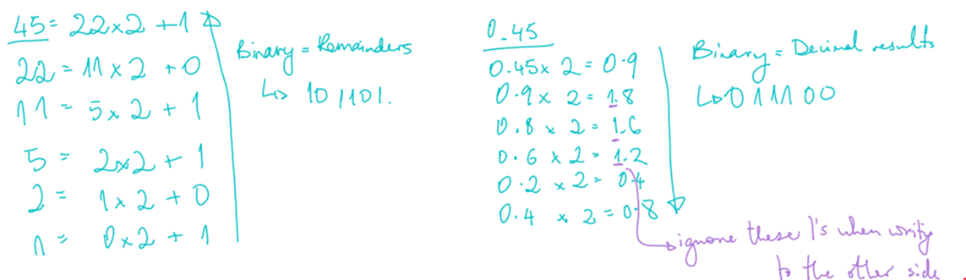 45 = 22x2 +1
22 = 11 x 2 +0
11 = 5x 2 + 1
5 = 2x2 + 1
2 = 1x 2 + 0
1 = 0x2 + 1
Binary = Remainders
↳ 101101.
0.45
0.45x 2 = 0.9
0.9 x 2 = 1.8
0.8 x 2 = 1.6
0.6 x 2 = 1.2
0.2 x 2 = 0.4
0.4 x 2 = 0.8
Binary = Decimal results
↳ 0 1 1 1 0 0
ignore these 1's when writing
to the other side